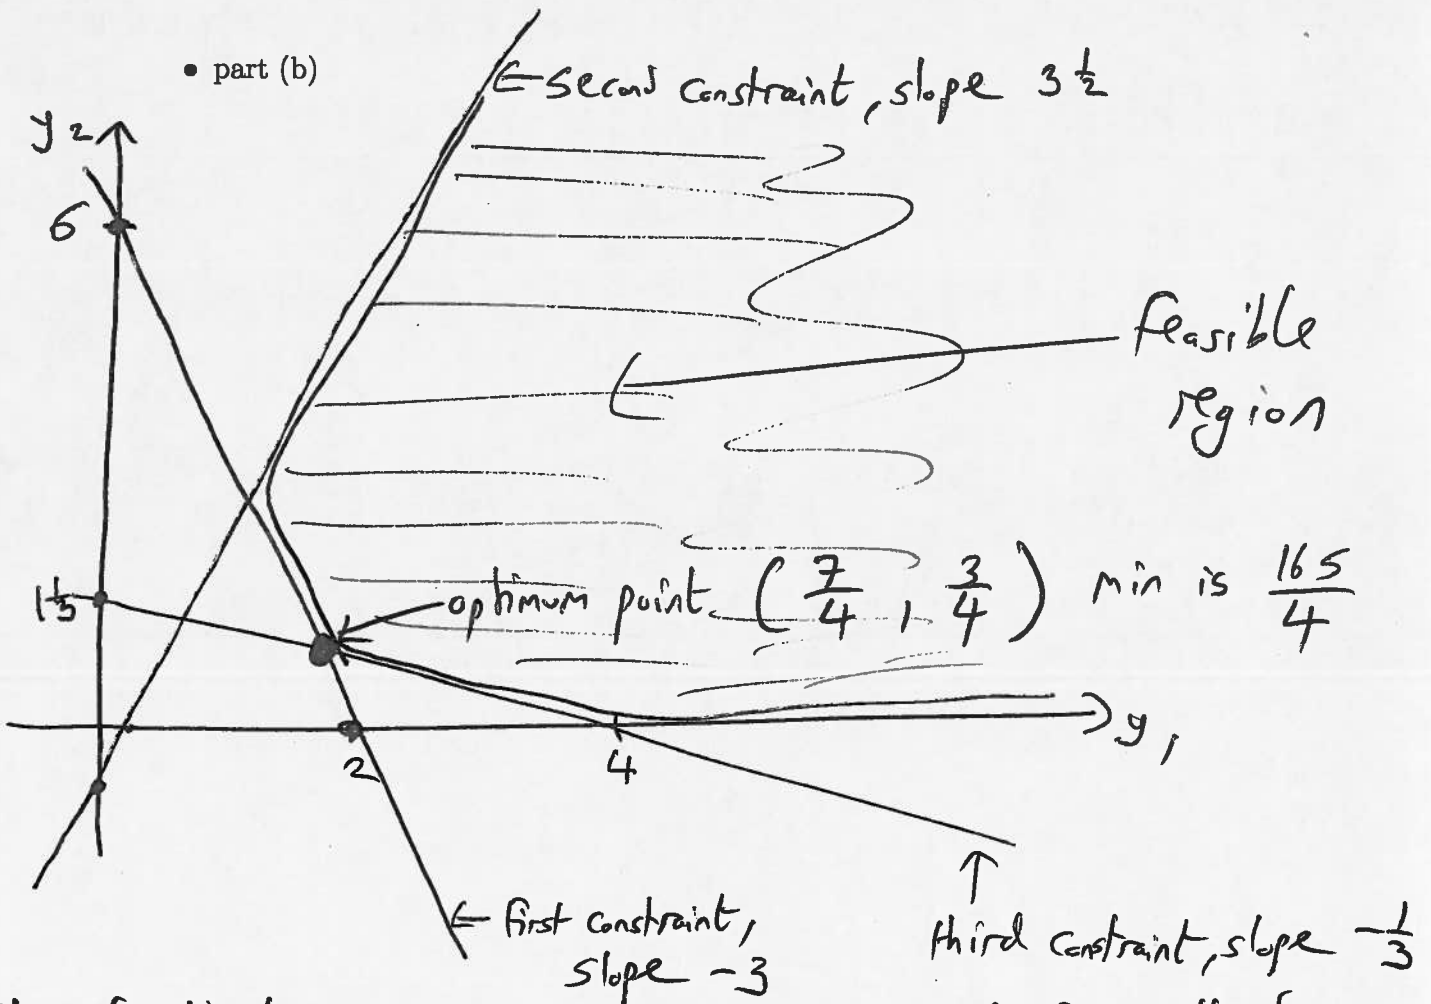 • part (b)
← second constraint, slope 3 1/2
y2
6
feasible
region
1 1/3
optimum point (7/4, 3/4) min is 165/4
y1
2
4
← first constraint,
slope -3
↑
third constraint, slope -1/3